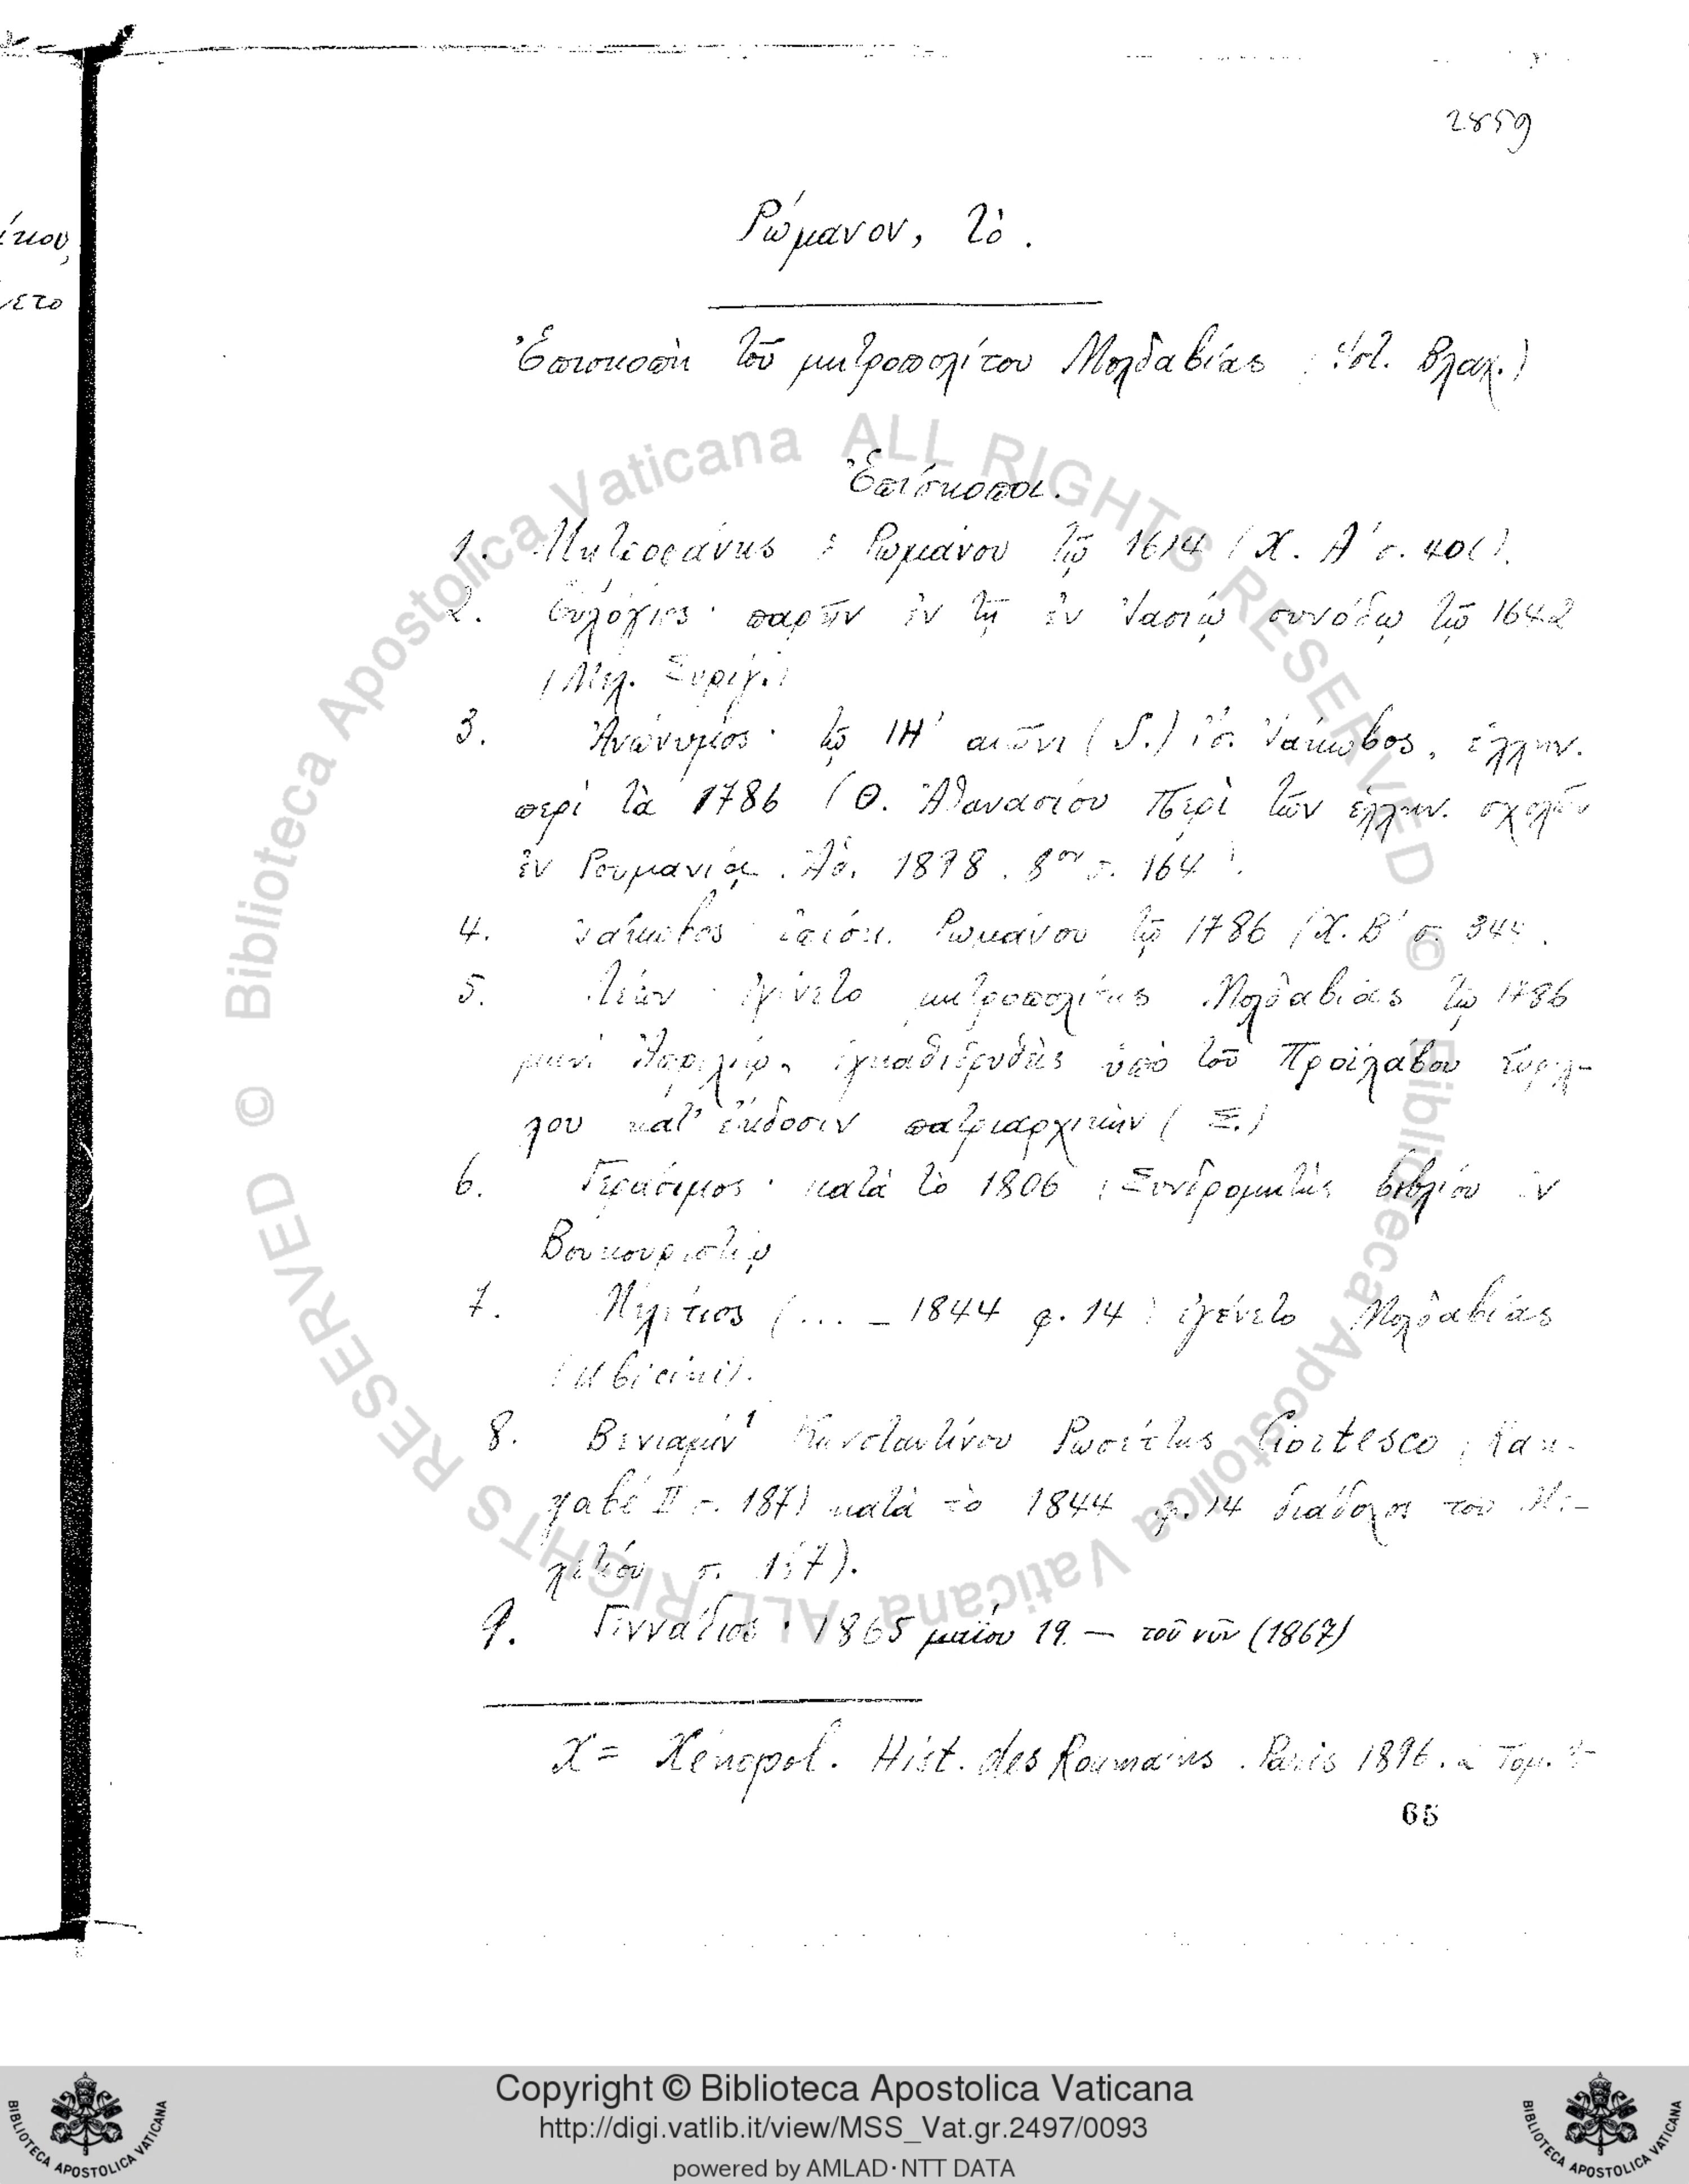 2859
ίκου,
ετο
Ρώμανον, τὸ.
Ἐπισκοπὴ τοῦ μητροπολίτου Μολδαβίας Βλαχ.)
Ἐπίσκοποι.
1. Μητροφάνης Ρωμάνου τῷ 1614 (Χ. Α' σ. 401).
2. Εὐλόγιος· παρῆν ἐν τῇ ἐν Ἰασίῳ συνόδῳ τῷ 1642
(Μελ. Συρίγ.)
3. Ἀνώνυμος· τῷ ΙΗ' αἰῶνι (S.) ἴσ. Ἰάκωβος, ἕλλην.
περὶ τὰ 1786 (Θ. Ἀθανασίου Περὶ τῶν ἑλλην. σχολῶν
ἐν Ρουμανίᾳ. Ἀθ. 1898. 8ον σ. 164).
4. Ἰάκωβος ἐπίσκ. Ρωμάνου τῷ 1786 (Χ. Β' σ. 344.
5. Λέων· ἐγένετο μητροπολίτης Μολδαβίας τῷ 1786
μηνὶ Ἀπριλίῳ, ἐγκαθιδρυθεὶς ὑπὸ τοῦ Προϊλάβου Κυρίλ-
λου κατ' ἔκδοσιν πατριαρχικὴν (Ξ.)
6. Γεράσιμος· κατὰ τὸ 1806 (Συνδρομητὴς βιβλίου ἐν
Βουκουρεστίῳ
7. Μελέτιος (... – 1844 φ. 14) ἐγένετο Μολδαβίας
(Ubicini).
8. Βενιαμὴν¹ Κωνσταντίνου Ρωσέττης (Ραγ-
γαβέ II σ. 187) κατὰ τὸ 1844 φ. 14 διάδοχος τοῦ Με-
λετίου σ. 187).
9. Γεννάδιος· 1865 μαΐου 19. – τοῦ νῦν (1867)
Χ = Xénopol. Hist. des Roumains. Paris 1896. Τομ.
65
Copyright © Biblioteca Apostolica Vaticana
http://digi.vatlib.it/view/MSS_Vat.gr.2497/0093
powered by AMLAD·NTT DATA
BIBLIOTECA APOSTOLICA VATICANA
BIBLIOTECA APOSTOLICA VATICANA
© Biblioteca Apostolica Vaticana ALL RIGHTS RESERVED
© Biblioteca Apostolica Vaticana ALL RIGHTS RESERVED